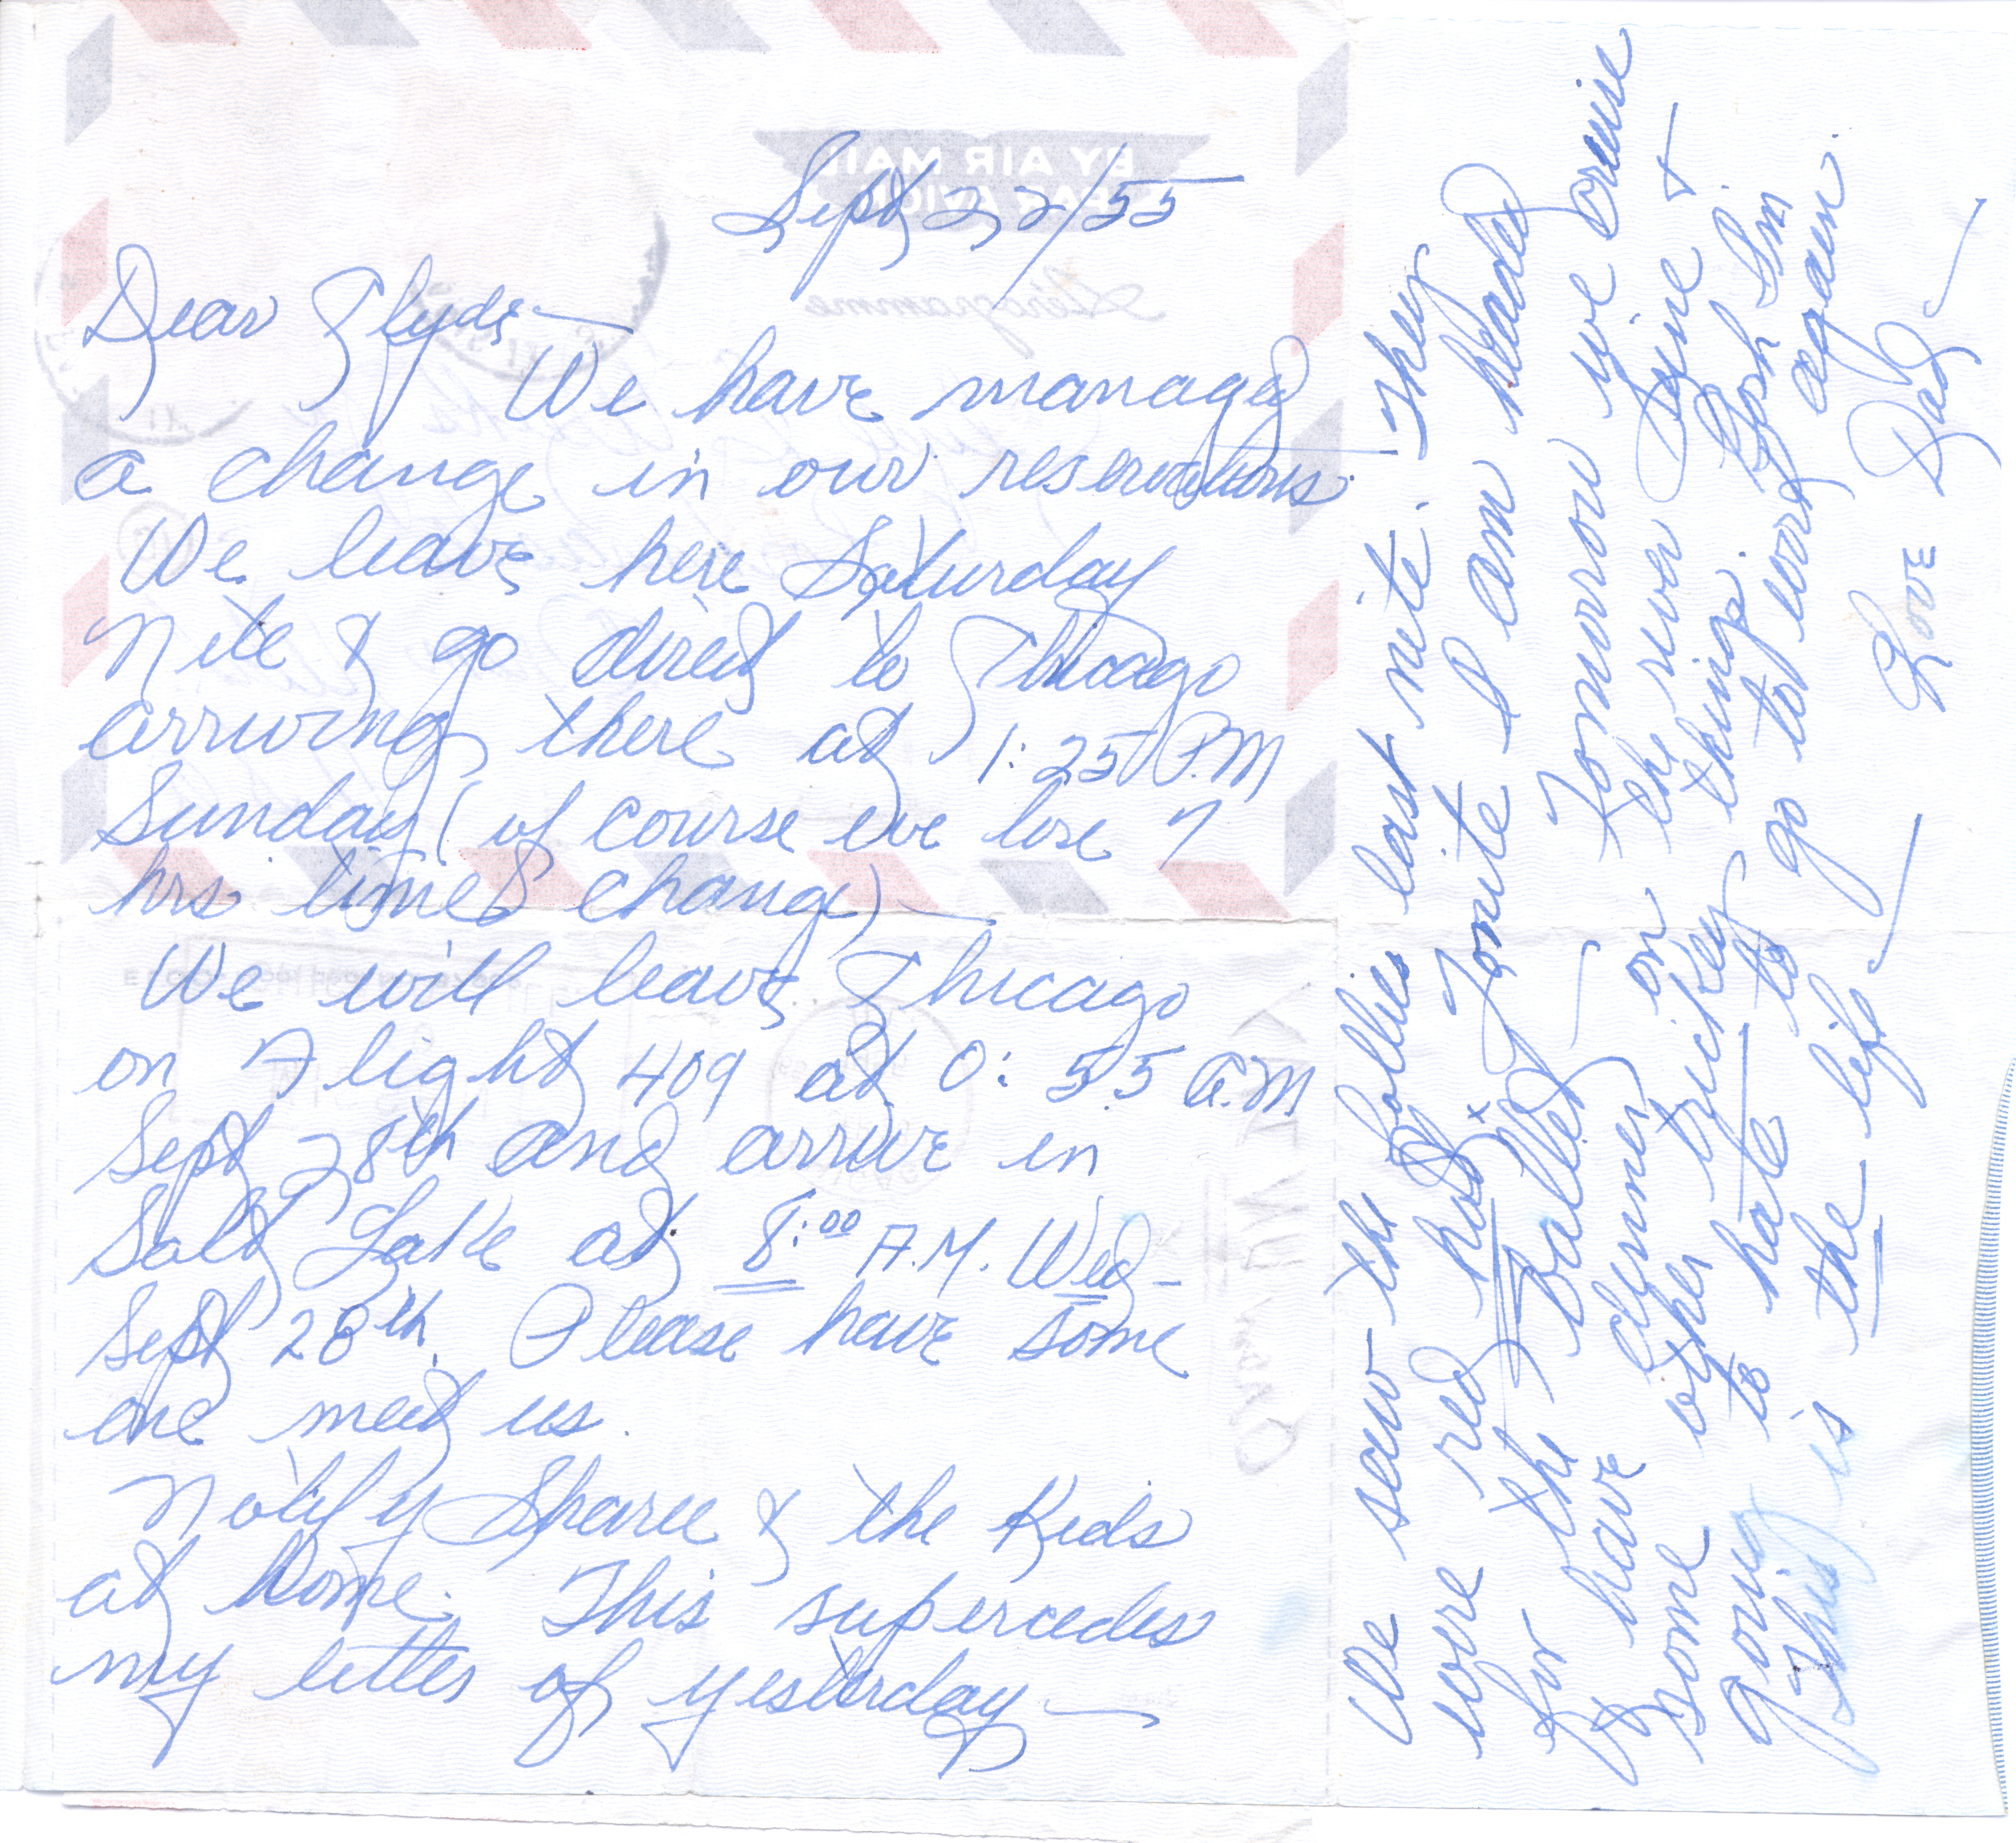 Sept 22/55
Dear Clyde —
We have managed
a change in our reservations.
We leave here Saturday
Nite & go direct to Chicago
arriving there at 1:25 P.M
Sunday (of course we lose 7
hrs time change) —
We will leave Chicago
on Flight 409 at 0:55 A.M.
Sept 28th and arrive in
Salt Lake at 8:00 A.M. Wed-
Sept 28th. Please have some
one meet us.
Notify Sharee & the Kids
at home. This supercedes
my letter of yesterday —
We saw the follies last nite. They
were red hot x Tonite I am headed
for the ballet — Tomorrow we cruise
& have dinner on the river Seine &
some other trickey things. Gosh I'm
going to hate to go to work again.
This is the life —
Love Dad —
BY AIR MAIL
PAR AVION
Aérogramme